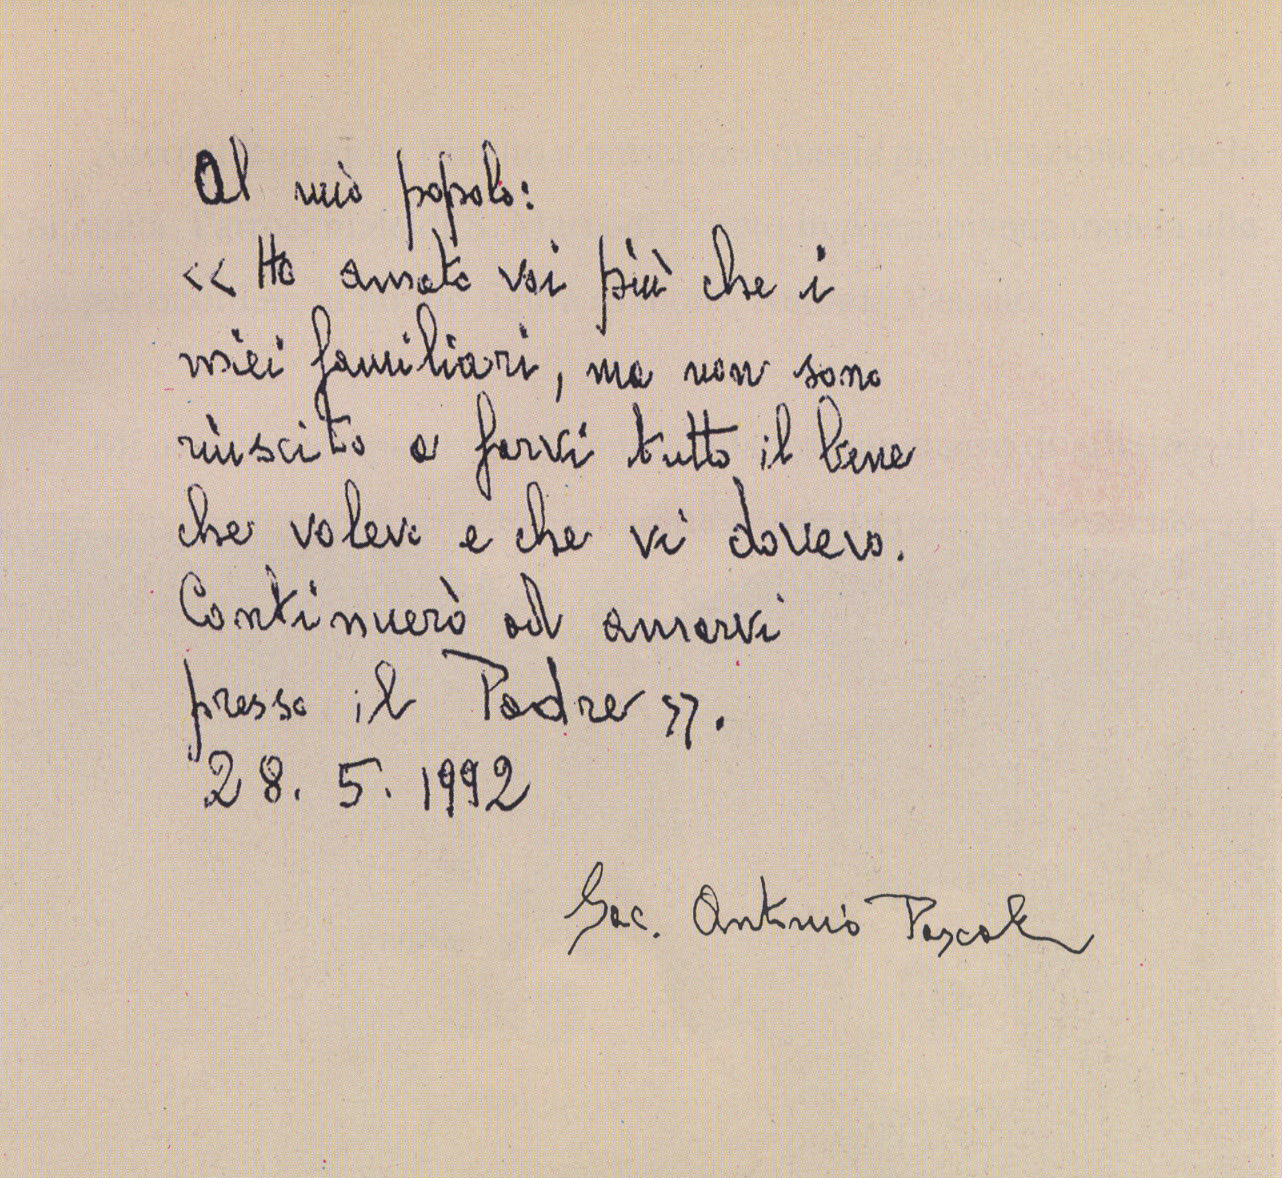 Al mio popolo:
<< Ho amato voi più che i
miei familiari, ma non sono
riuscito a farvi tutto il bene
che volevo e che vi dovevo.
Continuerò ad amarvi
presso il Padre >>.
28. 5. 1992
Sac. Antonio Pascale